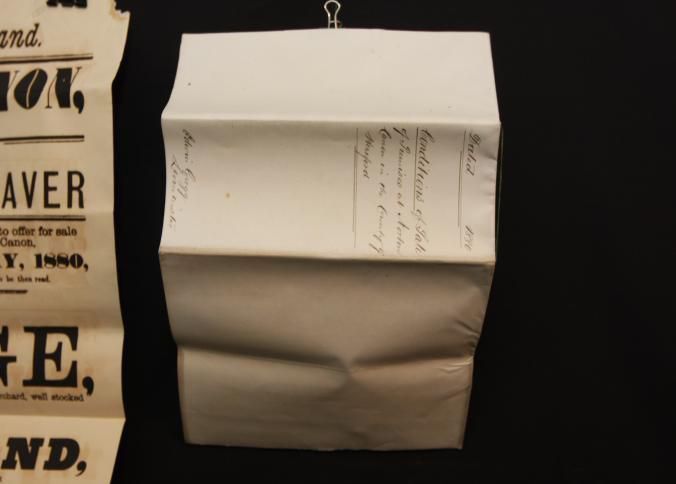 and.
YON,
AVER
to offer for sale
Canon,
Y, 1880,
o be then read.
GE,
rchard, well stocked
ND,
Dated 1880
Conditions of Sale
of Premises at Norton
Canon in the County of
Hereford
Leominster